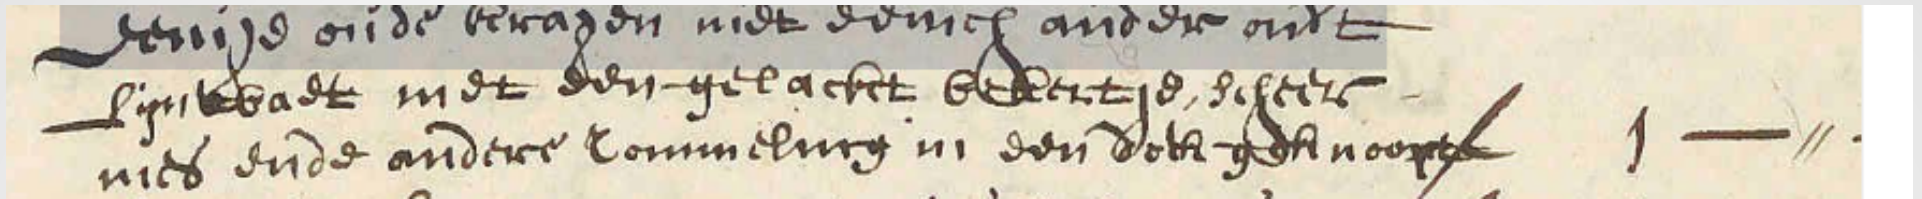 Eenige oude kragen met eenich ander oudt
lijnwadt met een gelackt bekertje, scheer
mes ende andere rommeling in een doek geknoopt 1 — //